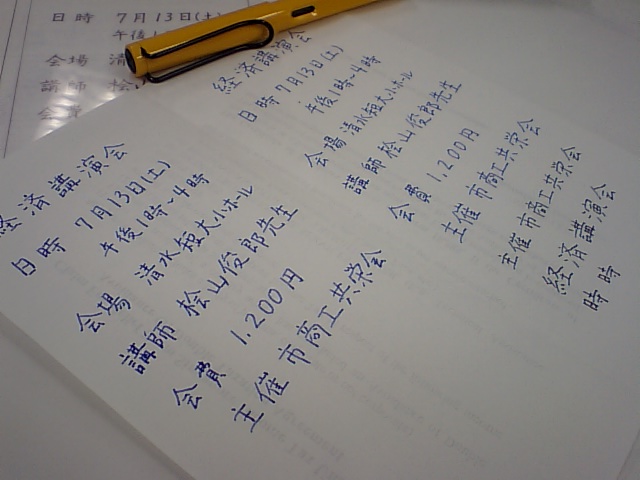 日時 7月13日(土)
午後1
会場 清
講師 桧
会費
経済講演会
日時 7月13日(土)
午後1時~4時
会場 清水短大小ホール
講師 桧山俊郎先生
会費 1,200円
主催 市商工共栄会
経済講演会
日時 7月13日(土)
午後1時~4時
会場 清水短大小ホール
講師 桧山俊郎先生
会費 1,200円
主催 市商工共栄会
主催 市商工共栄会
経済講演会
時時